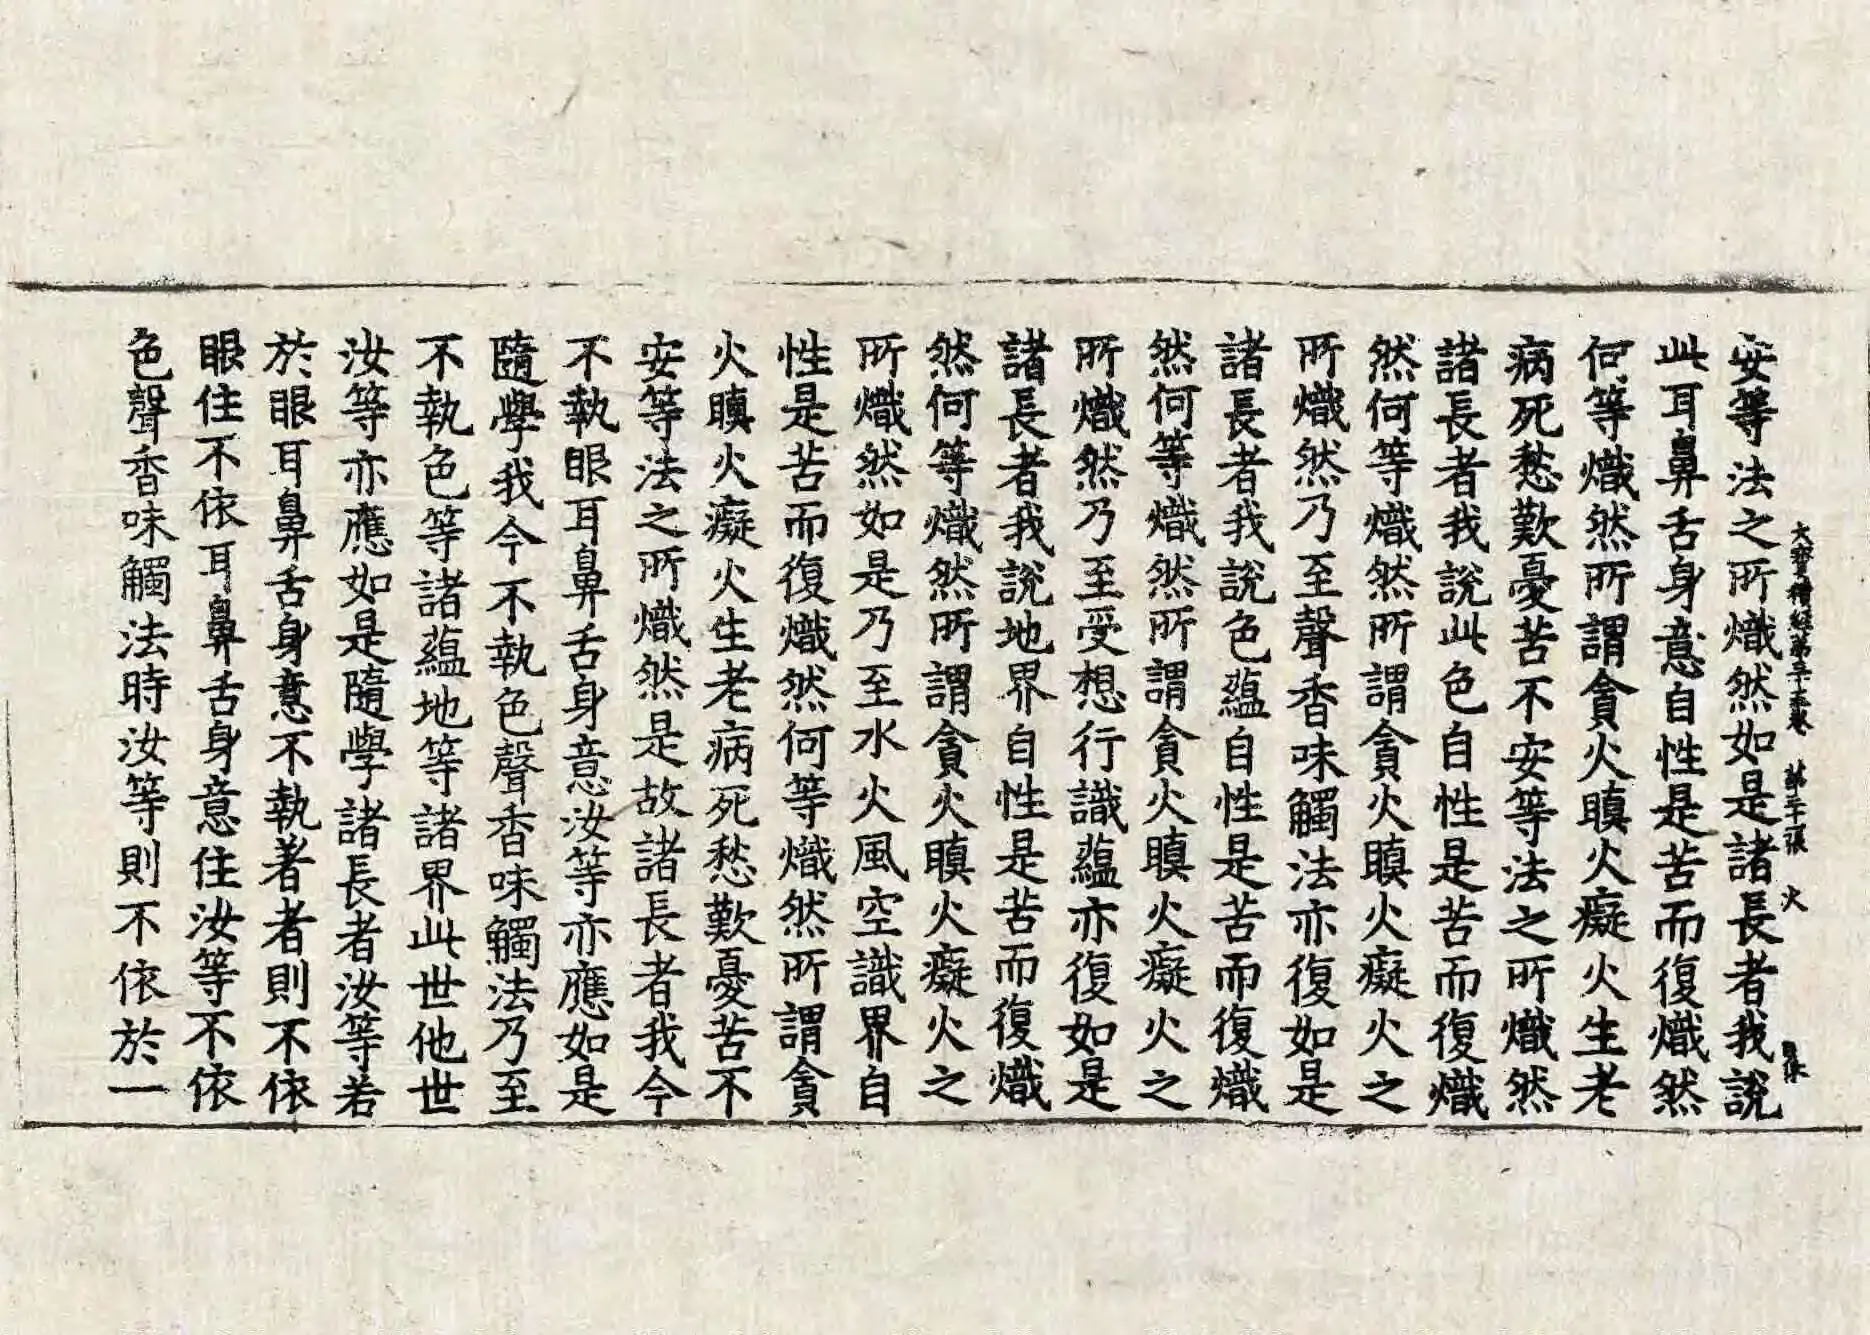 大寶積經第三十五卷 第二十張 火
安等法之所熾然如是諸長者我說
此耳鼻舌身意自性是苦而復熾然
何等熾然所謂貪火瞋火癡火生老
病死愁歎憂苦不安等法之所熾然
諸長者我說此色自性是苦而復熾
然何等熾然所謂貪火瞋火癡火之
所熾然乃至聲香味觸法亦復如是
諸長者我說色蘊自性是苦而復熾
然何等熾然所謂貪火瞋火癡火之
所熾然乃至受想行識蘊亦復如是
諸長者我說地界自性是苦而復熾
然何等熾然所謂貪火瞋火癡火之
所熾然如是乃至水火風空識界自
性是苦而復熾然何等熾然所謂貪
火瞋火癡火生老病死愁歎憂苦不
安等法之所熾然是故諸長者我今
不執眼耳鼻舌身意汝等亦應如是
隨學我今不執色聲香味觸法乃至
不執色等諸蘊地等諸界此世他世
汝等亦應如是隨學諸長者汝等若
於眼耳鼻舌身意不執著者則不依
眼住不依耳鼻舌身意住汝等不依
色聲香味觸法時汝等則不依於一